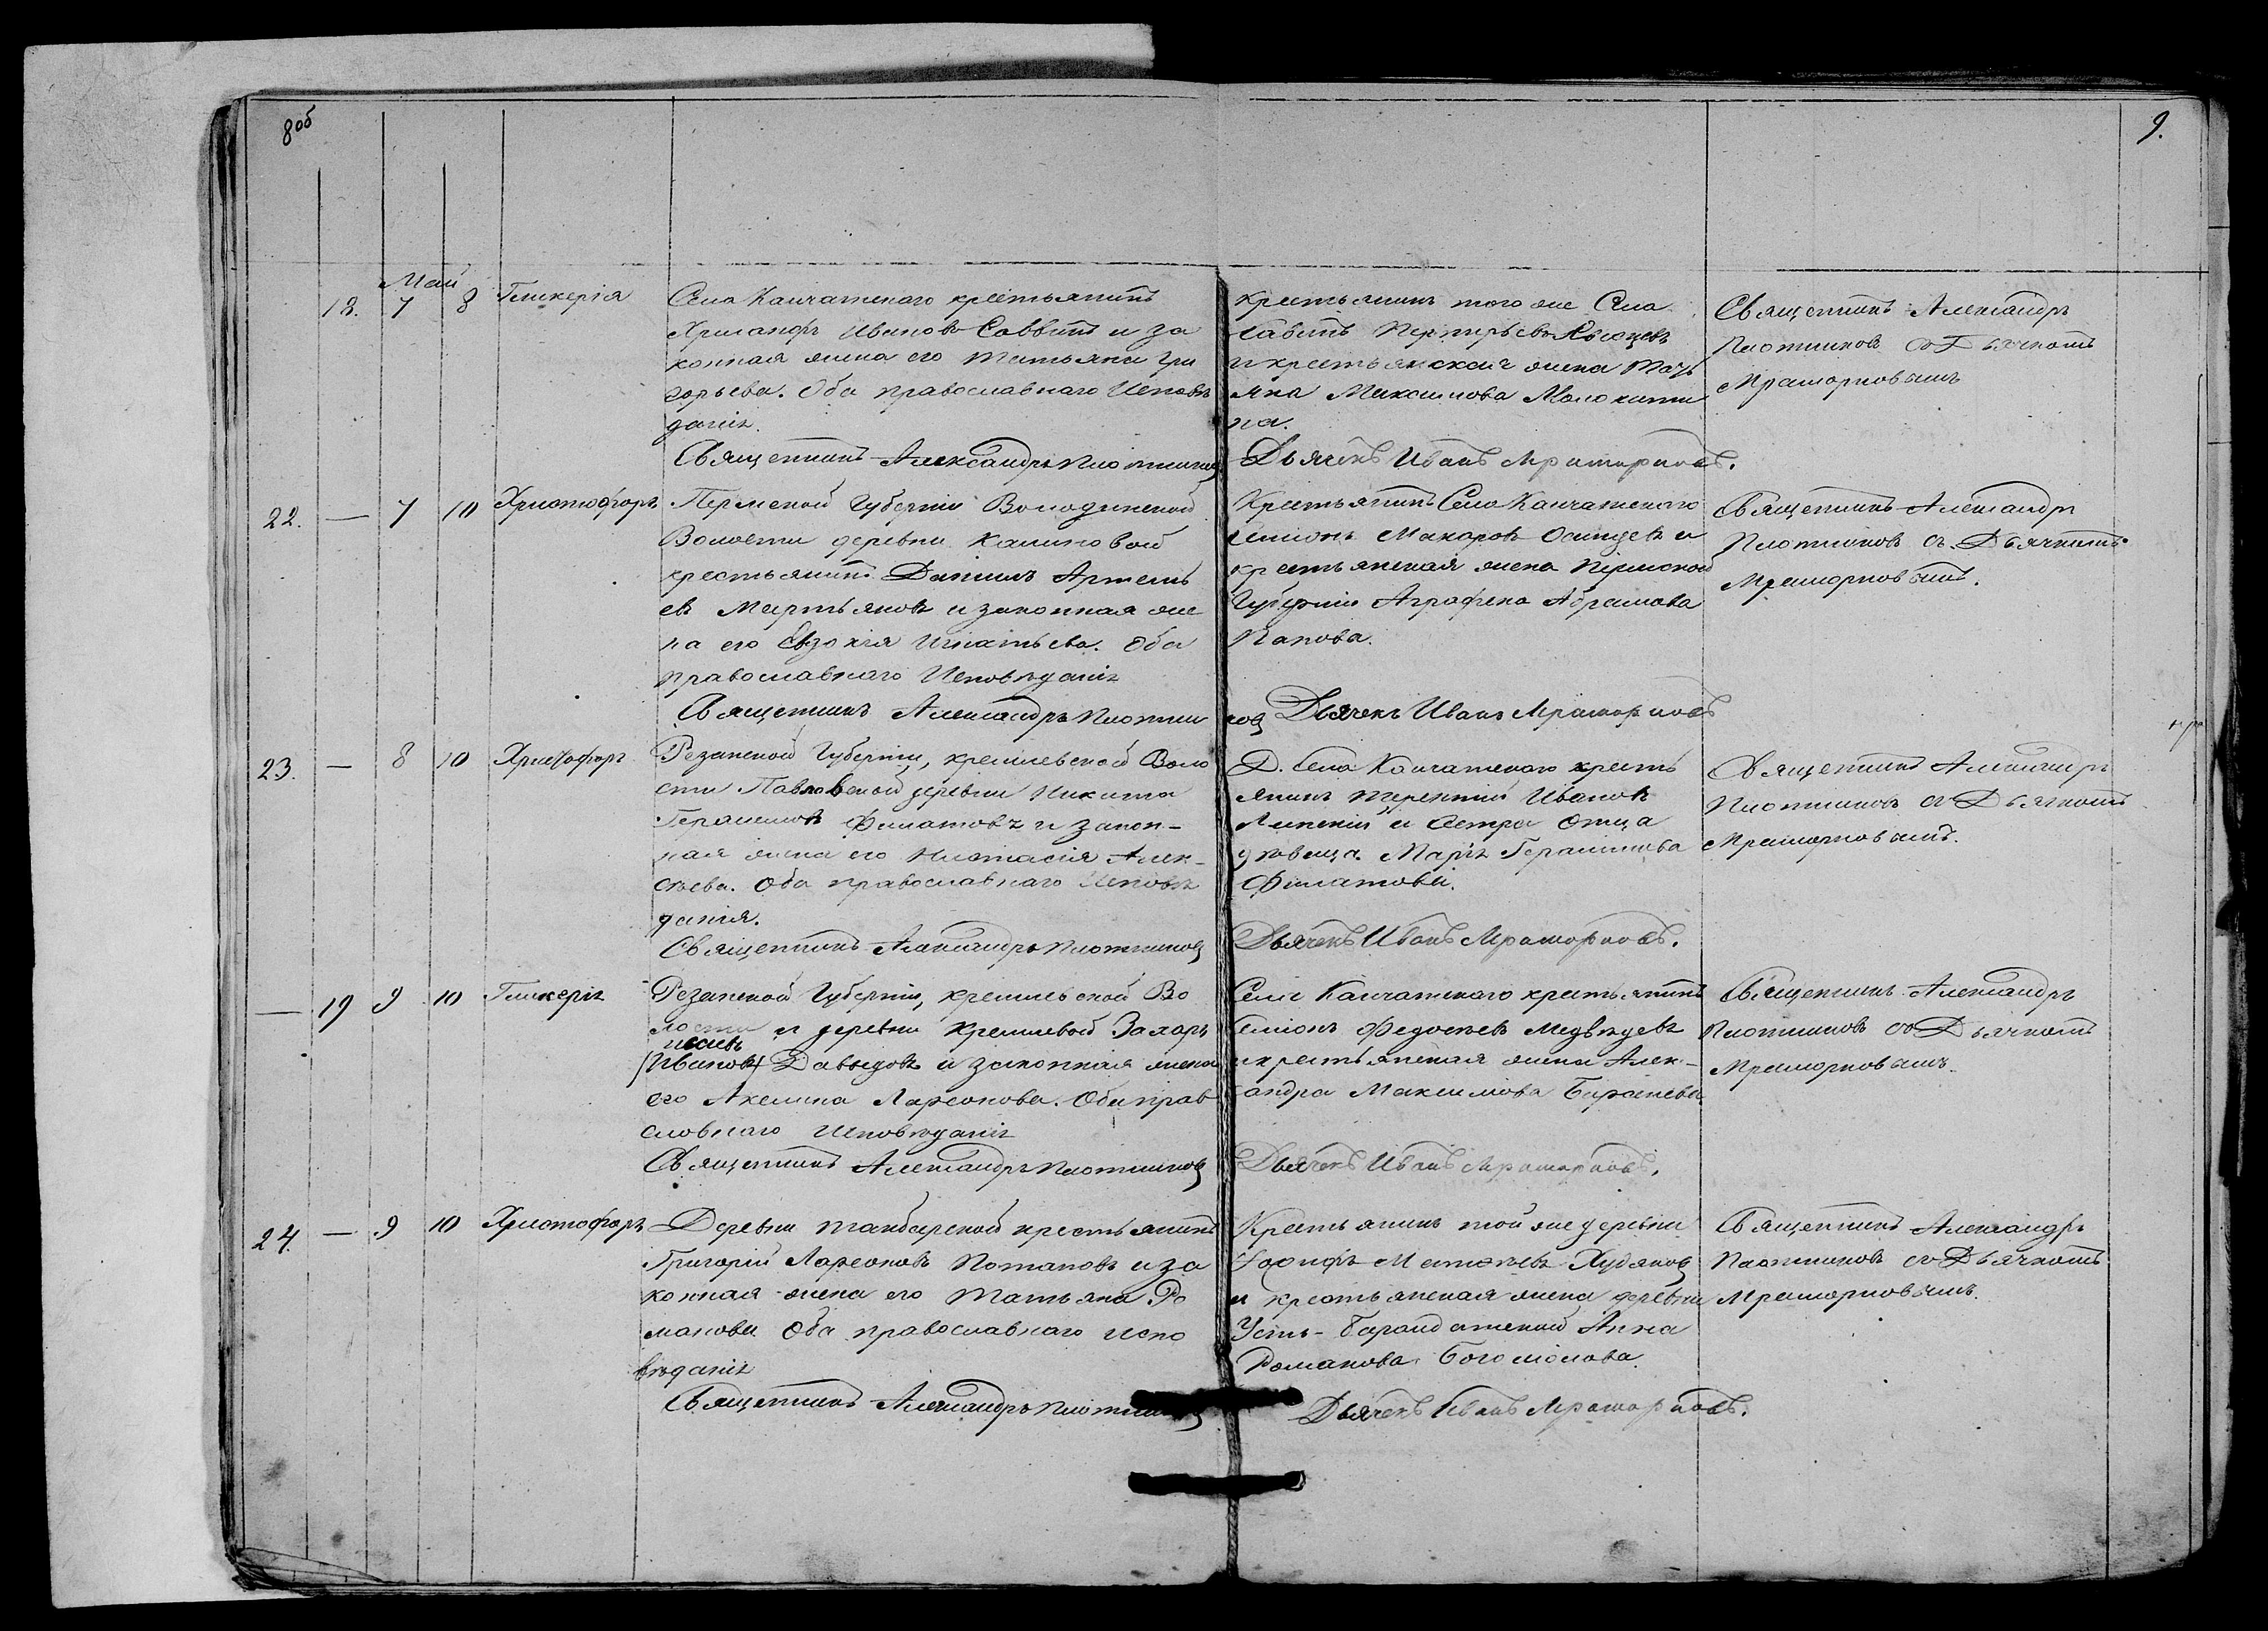 8об
9.
Май
18. 7 8 Гликерія
Села Каичатскаго крестьянинъ
Хрисанфъ Ивановъ Саввинъ и за
конная жена его Татьяна Гри
горьева. Оба православнаго Исповѣ
данія.
Священникъ Александръ Плотниковъ
крестьянинъ того же Села
и крестьянская жена Тать
яна Максимова Малокити
на.
Дьячекъ Иванъ Мраморновъ.
Священникъ Александръ
Плотниковъ съ Дьячкомъ
Мраморновымъ
22. — 7 10 Христофоръ
Пермской Губерніи Володинской
Волости деревни Калиновой
крестьянинъ Даніилъ Артемь
евъ Мартьяновъ и законная же
на его Евдокія Игнатьева. Оба
православнаго Исповѣданія
Священникъ Александръ Плотни
Крестьянинъ Села Каичатскаго
Симіонъ Макаровъ Осинцевъ и
крестьянская жена Пермской
Губерніи Аграфена Абрамова
Панова.
ковъ Дьячекъ Иванъ Мраморновъ
Священникъ Александръ
Плотниковъ съ Дьячкомъ
Мраморновымъ.
23. — 8 10 Христофоръ
Резанской Губерніи, кремлевской Воло
сти Павловской деревни Никита
Герасимовъ Филатовъ и закон-
ная жена его Анастасія Алек-
сѣева. Оба православнаго Исповѣ
данія.
Священникъ Александръ Плотниковъ
Д. Села Каичатскаго кресть
янинъ Терентій Ивановъ
Липскій и Сестра Отца
дѣвица Марія Герасимова
Филатова.
Дьячекъ Иванъ Мраморновъ.
Священникъ Александръ
Плотниковъ съ Дьячкомъ
Мраморновымъ.
— 19 9 10 Гликерія
Резанской Губерніи, кремлевской Во
лости и деревни Кремлевой Захаръ
(Ивановъ) Давыдовъ и законная жена
его Акелина Ларіонова. Оба прав
славнаго Исповѣданія
Священникъ Александръ Плотниковъ
Села Каичатскаго крестьянинъ
Симіонъ Федосѣевъ Медвѣдевъ
и крестьянская жена Алек-
сандра Максимова Баранева
Дьячекъ Иванъ Мраморновъ.
Священникъ Александръ
Плотниковъ съ Дьячкомъ
Мраморновымъ.
24. — 9 10 Христофоръ
Деревни Тамбарской крестьянинъ
Григорій Ларіоновъ Потаповъ и за
конная жена его Татьяна Ро
манова Оба православнаго испо
вѣданія
Священникъ Александръ Плотниковъ
Крестьянинъ той же деревни
Іосифъ Матвѣевъ Худяковъ
и крестьянская жена деревни
Усть-Барандатской Анна
Романова Богомолова.
Дьячекъ Иванъ Мраморновъ.
Священникъ Александръ
Плотниковъ съ Дьячкомъ
Мраморновымъ.